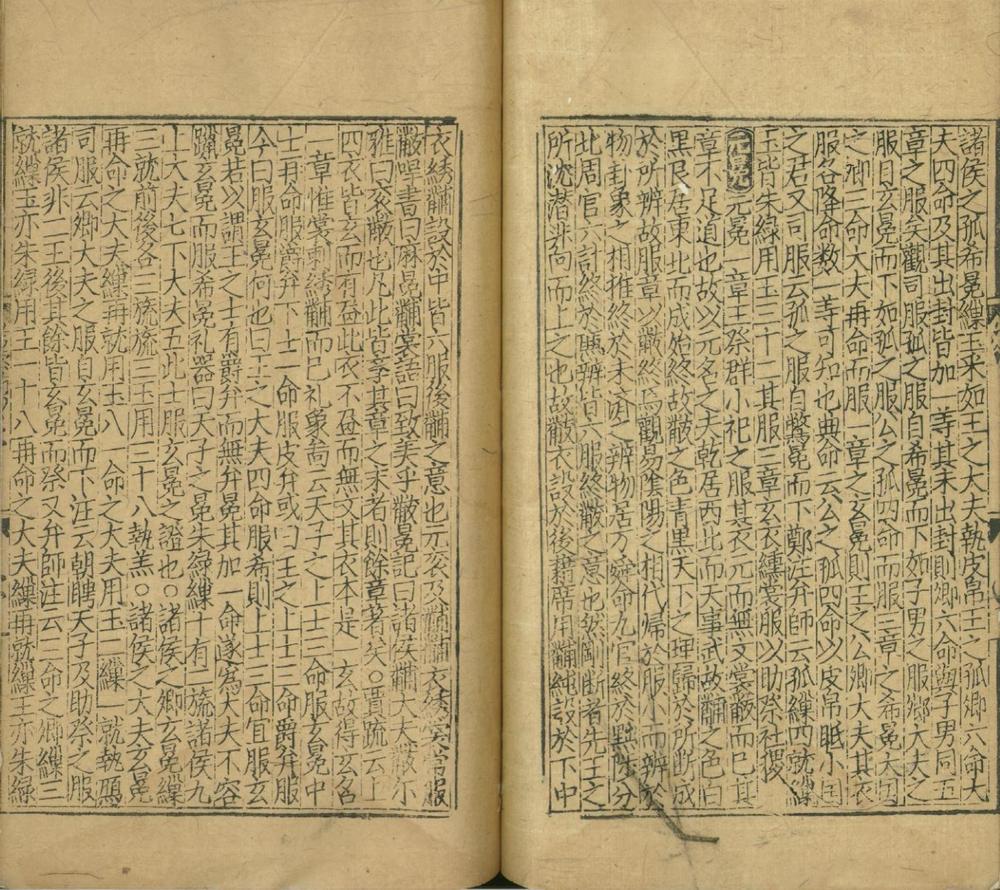 諸侯之孤希冕繅玉采如王之大夫執皮帛王之孤卿六命大
夫四命及其出封皆加一等其未出封則卿六命與子男同五
章之服矣觀司服孤之服自希冕而下如子男之服卿大夫之
服自玄冕而下如孤之服公之孤四命而服三章之希冕大國
之卿三命大夫再命而服一章之玄冕則王之公卿大夫其衣
服各降命數一等可知也典命云公之孤四命以皮帛眡小國
之君又司服云孤之服自鷩冕而下鄭注弁師云孤繅四就
玉皆朱綠用玉三十二其服三章玄衣纁裳服以助祭社稷
元冕元冕一章王祭群小祀之服其衣元而無文裳黻而已其
章不足道也故以元名之夫乾居西北而天事武故黼之色白
黑艮居東北而成始終故黻之色青黑天下之理歸於所斷成
於所辨故服章以黻終焉觀易陰陽之相代帰於服小而辨於
物卦象之相推終於未濟之辨物居方舜命九官終於黜陟分
北周官六計終於廉辨皆六服終黻之意也然剛斷者先王之
所沈潜非向而上之也故黻衣設於後黼席用黼純設於下中
衣綉黼設於中皆六服後黼之意也
黻哻書曰麻冕黼裳語曰致美乎黻冕記曰諸侯黼大夫黻尔
雅曰袞黻也凡此皆擧其章之末者則餘章著矣〇賈疏云上
四衣皆玄而有畫此衣不畫而無文其衣本是一玄故得玄名
一章惟裳刺綉黼而已礼象啇云天子之上士三命服玄冕中
士再命服爵弁下士一命服皮弁或曰王之上士三命爵弁服
今曰服玄冕何也曰王之大夫四命服希則上士三命宜服玄
冕若以謂王之士有爵弁而無弁冕其加一命遂為大夫不容
躐玄冕而服希冕礼器曰天子之冕朱綠繅十有二旒諸侯九
上大夫七下大夫五此士服玄冕之證也〇諸侯之卿玄冕繅
三就前後各三旒旒三玉用三十八執羔〇諸侯之大夫玄冕
再命之大夫繅再就用玉八一命之大夫用玉二繅一就執鴈
司服云卿大夫之服自玄冕而下注云朝聘天子及助祭之服
諸侯非二王後其餘皆玄冕而祭又弁師注云三命之卿繅三
就繅玉亦朱綠用玉一十八再命之大夫繅再就繅玉亦朱綠